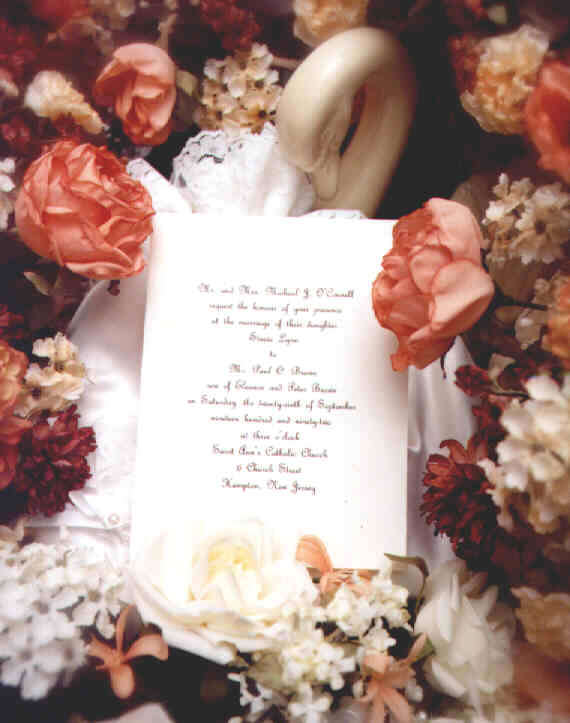 Mr. and Mrs. Michael J. O'Connell
request the honour of your presence
at the marriage of their daughter
Stacie Lynn
to
Mr. Paul C. Brown
son of Eleanor and Peter Brown
on Saturday, the twenty-ninth of September
nineteen hundred and ninety-two
at three o'clock
Saint Ann's Catholic Church
6 Church Street
Hampton, New Jersey